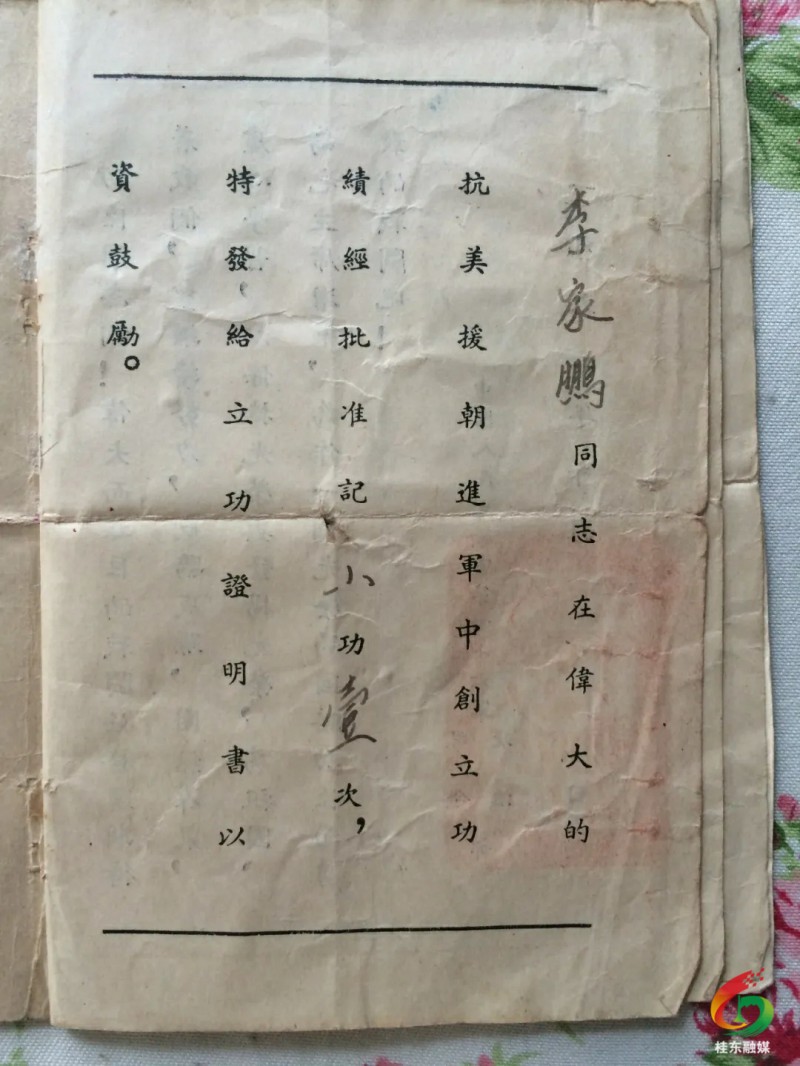 李家鵬同志在偉大的
抗美援朝進軍中創立功
績經批准記小功壹次，
特發給立功證明書以
資鼓勵。
桂东融媒